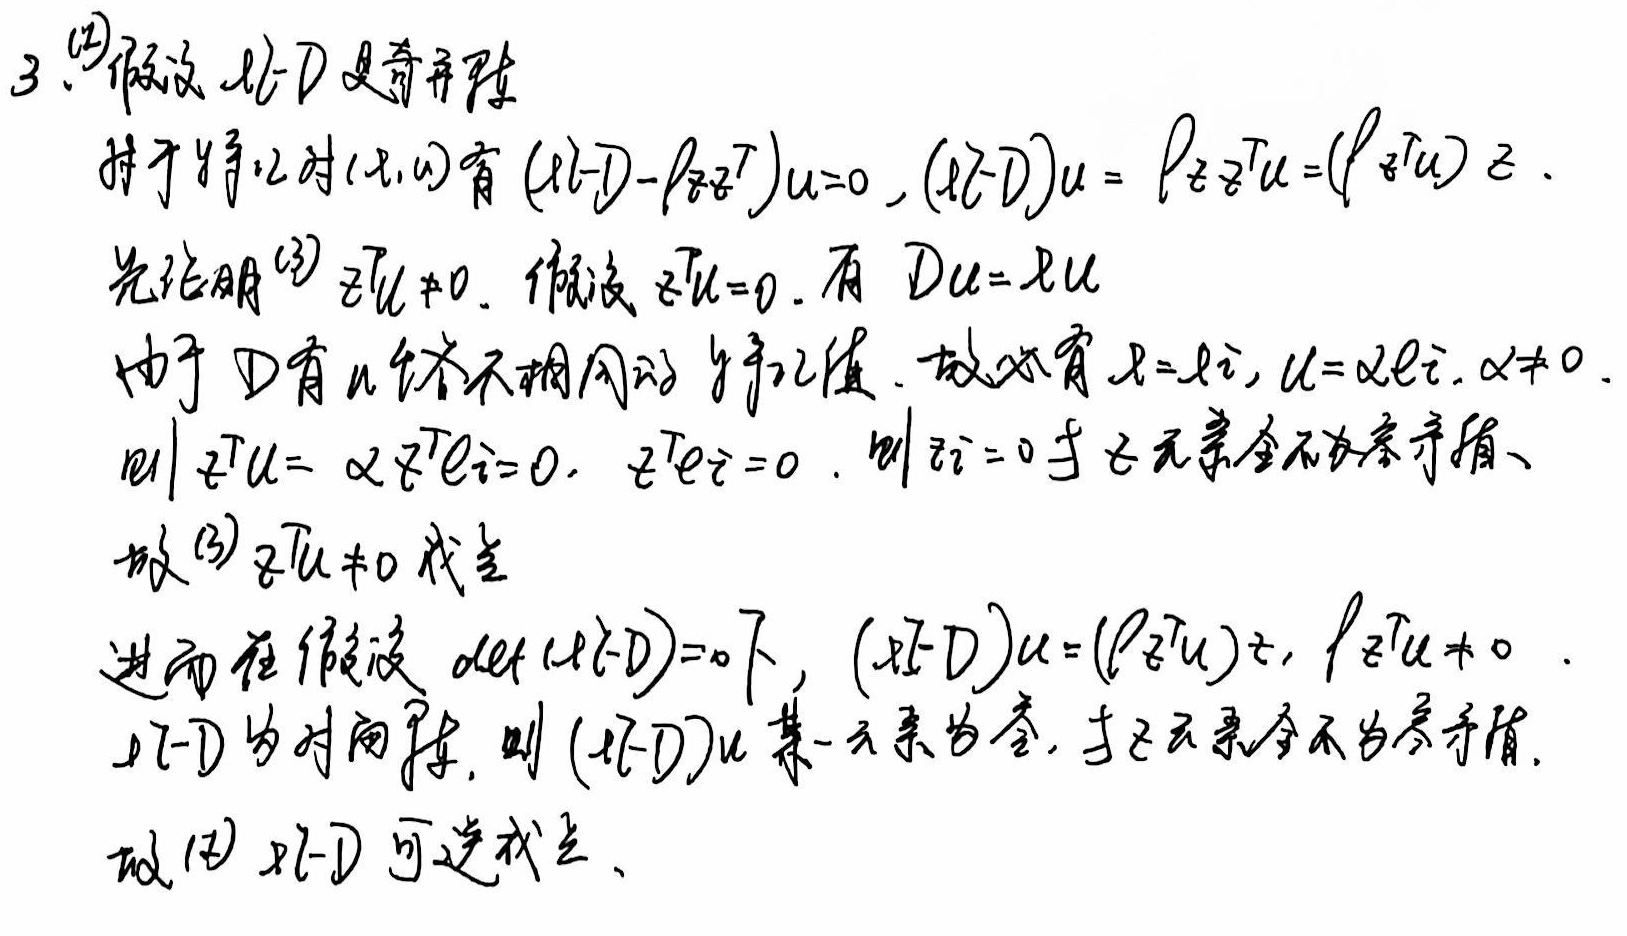 3. (2) 假设 λI-D 是奇异阵
对于特征对(λ,u)有 (λI-D-ρzzᵀ)u=0, (λI-D)u = ρzzᵀu=(ρzᵀu) z.
先证明(3) zᵀu≠0. 假设 zᵀu=0. 有 Du=λu
由于 D有n个各不相同的特征值. 故必有 λ=λi, u=αei. α≠0.
则 zᵀu= αzᵀei=0. zᵀei=0. 则 zi=0与 z 元素全不为零矛盾、
故(3) zᵀu≠0 成立
进而在假设 det(λI-D)=0下, (λI-D)u=(ρzᵀu)z, ρzᵀu≠0.
λI-D 为对角阵, 则 (λI-D)u 某一元素为零, 与z元素全不为零矛盾.
故(2) λI-D 可逆成立、